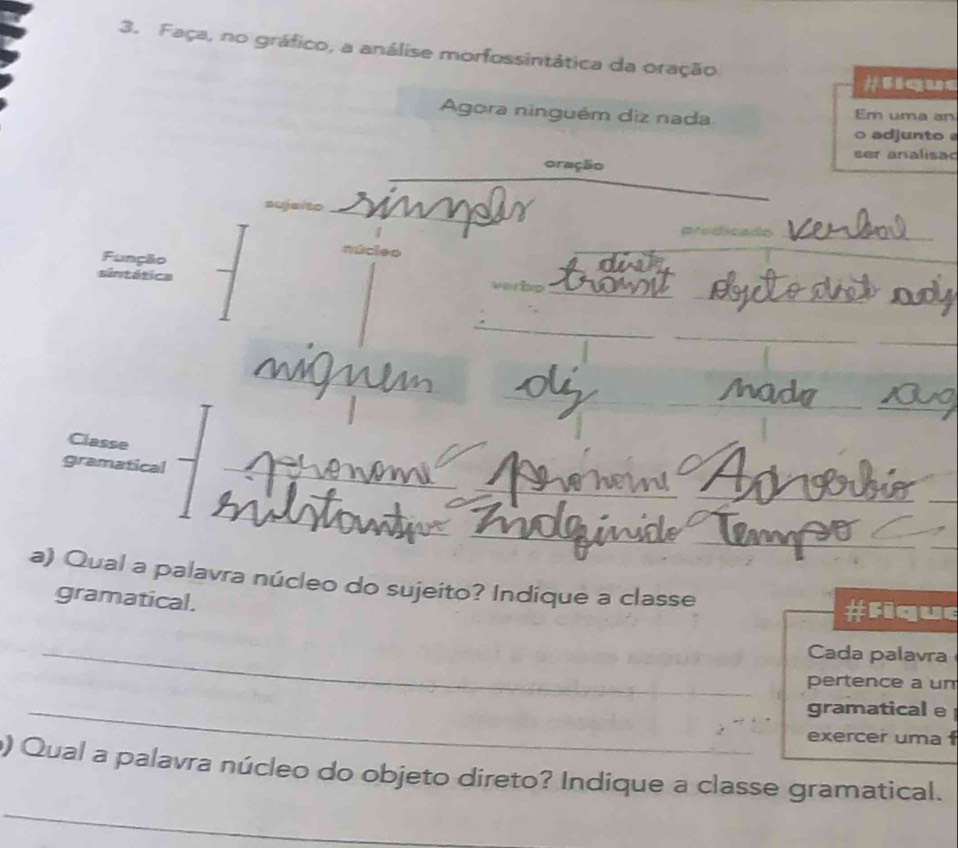 3. Faça, no gráfico, a análise morfossintática da oração
#Fique
Agora ninguém diz nada.
Em uma an
o adjunto a
ser analisad
oração
sujeito simples
predicado verbal
núcleo
Função
sintática
direto
verbo transit objeto diret adj
niguem diz nada ag
Classe
gramatical
pronome pronome Adverbio
substantivo indefinido Tempo
a) Qual a palavra núcleo do sujeito? Indique a classe
gramatical.
#Fique
Cada palavra
pertence a um
gramatical e
exercer uma f
) Qual a palavra núcleo do objeto direto? Indique a classe gramatical.